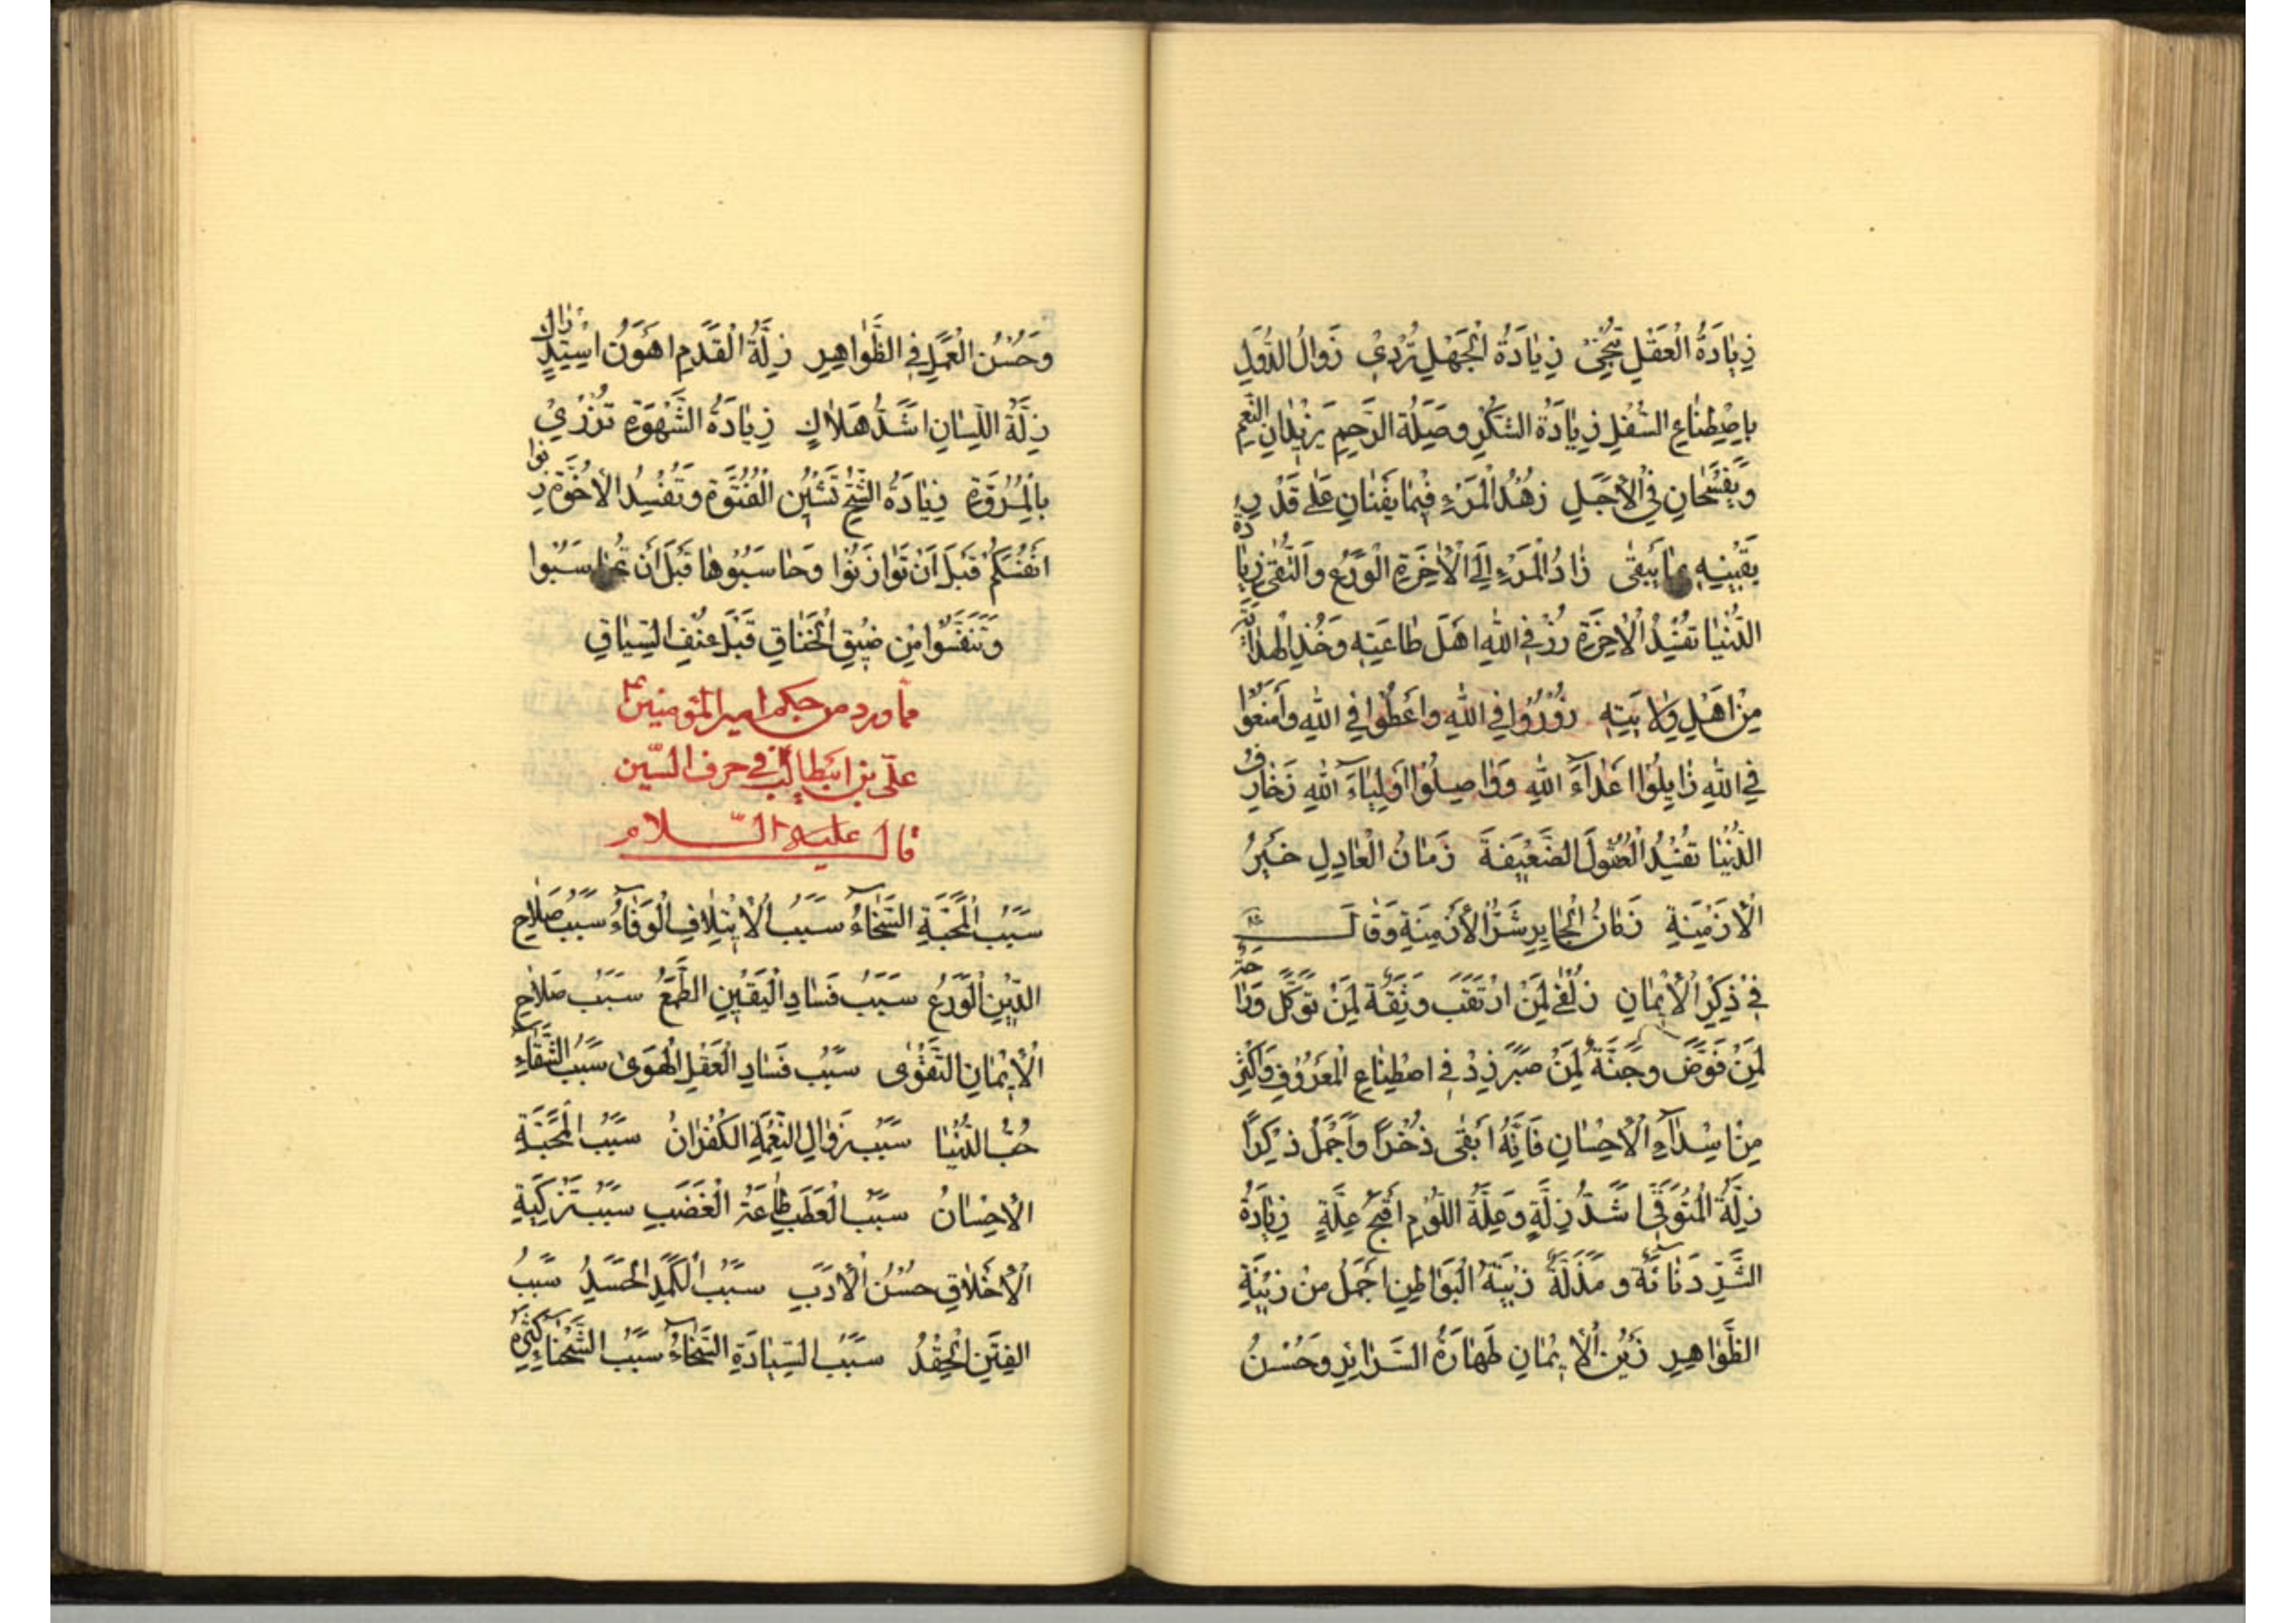 زِيَادَةُ الْعَقْلِ تُنْجِي زِيَادَةُ الْجَهْلِ تُرْدِي زَوَالُ الدُّوَلِ
بِاصْطِنَاعِ السُّفَلِ زِيَادَةُ الشُّكْرِ وَصِلَةُ الرَّحِمِ يَزِيدَانِ النِّعَمَ
وَيَفْسَحَانِ فِي الْأَجَلِ زُهْدُ الْمَرْءِ فِيمَا يَفْنَى عَلَى قَدْرِ
يَقِينِهِ بِمَا يَبْقَى زَادُ الْمَرْءِ إِلَى الْآخِرَةِ الْوَرَعُ وَالتُّقَى زِيَادَةُ
الدُّنْيَا تُفْسِدُ الْآخِرَةَ زُرْ فِي اللهِ أَهْلَ طَاعَتِهِ وَخُذِ الْهِدَايَةَ
مِنْ أَهْلِ وِلَايَتِهِ زُورُوا فِي اللهِ وَأَعْطُوا فِي اللهِ وَامْنَعُوا
فِي اللهِ زَايِلُوا أَعْدَاءَ اللهِ وَوَاصِلُوا أَوْلِيَاءَ اللهِ زَخَارِفُ
الدُّنْيَا تُفْسِدُ الْعُقُولَ الضَّعِيفَةَ زَمَانُ الْعَادِلِ خَيْرُ
الْأَزْمِنَةِ زَمَانُ الْجَايِرِ شَرُّ الْأَزْمِنَةِ وَقَالَ ع
فِي ذِكْرِ الْإِيمَانِ زُلْفَى لِمَنِ ارْتَقَبَ وَثِقَةٌ لِمَنْ تَوَكَّلَ وَرَاحَةٌ
لِمَنْ فَوَّضَ وَجُنَّةٌ لِمَنْ صَبَرَ زِدْ فِي اصْطِنَاعِ الْمَعْرُوفِ وَأَكْثِرْ
مِنْ إِسْدَاءِ الْإِحْسَانِ فَإِنَّهُ أَبْقَى ذُخْرًا وَأَجْمَلُ ذِكْرًا
زِلَّةُ الْمُتَوَقِّي أَشَدُّ زِلَّةٍ وَعِلَّةُ اللُّؤْمِ أَقْبَحُ عِلَّةٍ زِيَادَةُ
الشَّرِّ دَنَائَةٌ وَمَذَلَّةٌ زِينَةُ الْبَوَاطِنِ أَجْمَلُ مِنْ زِينَةِ
الظَّوَاهِرِ زَيْنُ الْإِيمَانِ طَهَارَةُ السَّرَائِرِ وَحُسْنُ
وَحُسْنُ الْعَمَلِ فِي الظَّوَاهِرِ زَلَّةُ الْقَدَمِ أَهْوَنُ اسْتِدْرَاكٍ
زَلَّةُ اللِّسَانِ أَشَدُّ هَلَاكٍ زِيَادَةُ الشَّهْوَةِ تُزْرِي
بِالْمُرُوَّةِ زِيَادَةُ الشُّحِّ تَشِينُ الْفُتُوَّةَ وَتُفْسِدُ الْأُخُوَّةَ زِنُوا
أَنْفُسَكُمْ قَبْلَ أَنْ تُوَازَنُوا وَحَاسِبُوهَا قَبْلَ أَنْ تُحَاسَبُوا
وَتَنَفَّسُوا مِنْ ضِيقِ الْخِنَاقِ قَبْلَ عُنْفِ السِّيَاقِ
مما ورد من حكم امير المؤمنين ع
علي بن ابيطالب في حرف السّين
قال عليه السّلام
سَبَبُ الْمَحَبَّةِ السَّخَاءُ سَبَبُ الْإِئْتِلَافِ الْوَفَاءُ سَبَبُ صَلَاحِ
الدِّينِ الْوَرَعُ سَبَبُ فَسَادِ الْيَقِينِ الطَّمَعُ سَبَبُ صَلَاحِ
الْإِيمَانِ التَّقْوَى سَبَبُ فَسَادِ الْعَقْلِ الْهَوَى سَبَبُ الشَّقَاءِ
حُبُّ الدُّنْيَا سَبَبُ زَوَالِ النِّعْمَةِ الْكُفْرَانُ سَبَبُ الْمَحَبَّةِ
الْإِحْسَانُ سَبَبُ الْعَطَبِ طَاعَةُ الْغَضَبِ سَبَبُ تَزْكِيَةِ
الْأَخْلَاقِ حُسْنُ الْأَدَبِ سَبَبُ الْكَمَدِ الْحَسَدُ سَبَبُ
الْفِتَنِ الْحِقْدُ سَبَبُ السِّيَادَةِ السَّخَاءُ سَبَبُ الشَّحْنَاءِ كَثْرَةُ